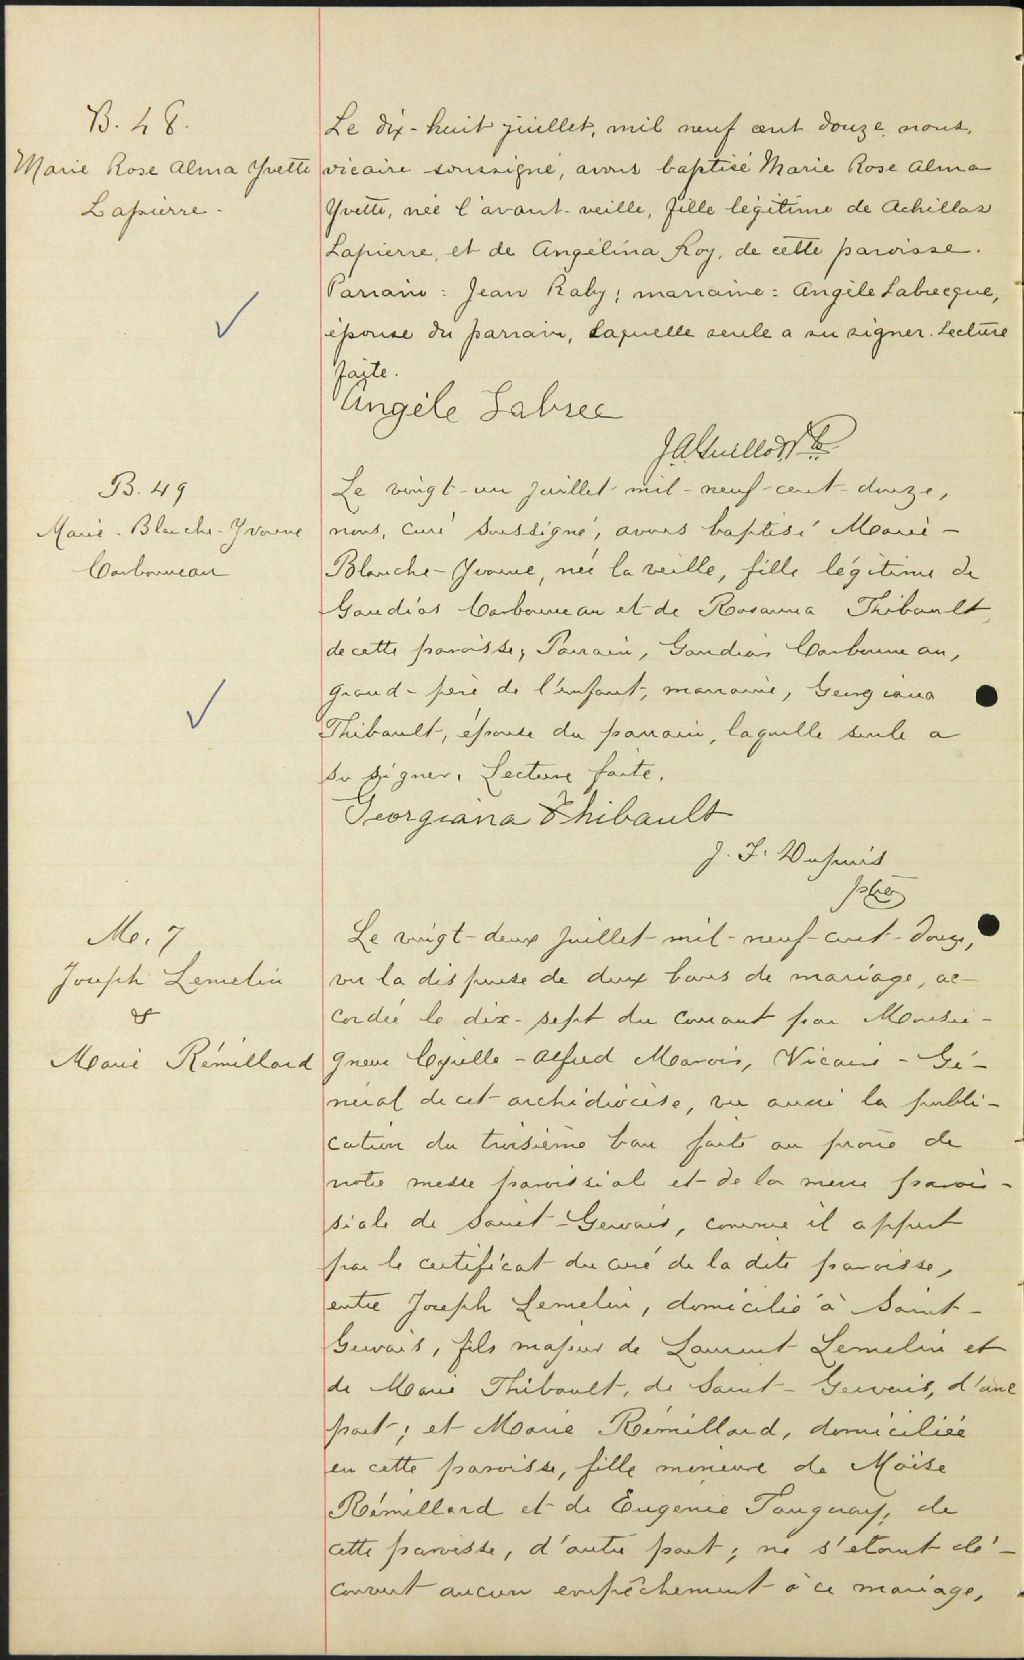 B. 48.
Marie Rose Alma Yvette
Lapierre.
Le dix-huit juillet, mil neuf cent douze, nous,
vicaire soussigné, avons baptisé Marie Rose Alma
Yvette, née l'avant-veille, fille légitime de Achillas
Lapierre, et de Angélina Roy, de cette paroisse.
Parrain : Jean Raby ; marraine : Angèle Labrecque,
épouse du parrain, laquelle seule a su signer. Lecture
faite.
Angéle Labrec
J.A. Guillot Ptr.
B. 49
Marie-Blanche-Yvonne
Carbonneau
Le vingt-un juillet mil-neuf-cent-douze,
nous, curé soussigné, avons baptisé Marie-
Blanche-Yvonne, née la veille, fille légitime de
Gaudias Carbonneau et de Rosanna Thibault,
de cette paroisse, Parrain, Gaudias Carbonneau,
grand-père de l'enfant, marraine, Georgiana
Thibault, épouse du parrain, laquelle seule a
su signer. Lecture faite.
Georgiana Thibault
J. F. Dupuis
ptre
M. 7
Joseph Lemelin
&
Marie Rémillard
Le vingt-deux juillet-mil-neuf-cent-douze,
vu la dispense de deux bans de mariage, ac-
cordée le dix-sept du courant par Monsei-
gneur Cyrille-Alfred Marois, Vicaire-Gé-
néral de cet archidiocèse, vu aussi la publi-
cation du troisième ban faite au prône de
notre messe paroissiale et de la messe parois-
siale de Saint-Gervais, comme il appert
par le certificat du curé de la dite paroisse,
entre Joseph Lemelin, domicilié à Saint-
Gervais, fils majeur de Laurent Lemelin et
de Marie Thibault, de Saint-Gervais, d'une
part ; et Marie Rémillard, domiciliée
en cette paroisse, fille mineure de Moïse
Rémillard et de Eugenie Tanguay, de
cette paroisse, d'autre part ; ne s'étant dé-
couvert aucun empêchement à ce mariage,